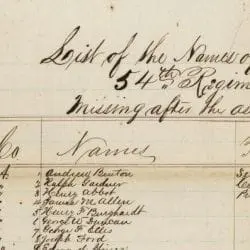 List of the Names o
54th Regim
Missing after the as
Co Names
A. 1 Andrew Benton
" 2 Ralph Gardner
" 3 Henry Abbot
" 4 James M. Allen
" 5 Henry F. Burghardt
" 6 George W. Duncan
" 7 George F. Ellis
" 8 Joseph Ford